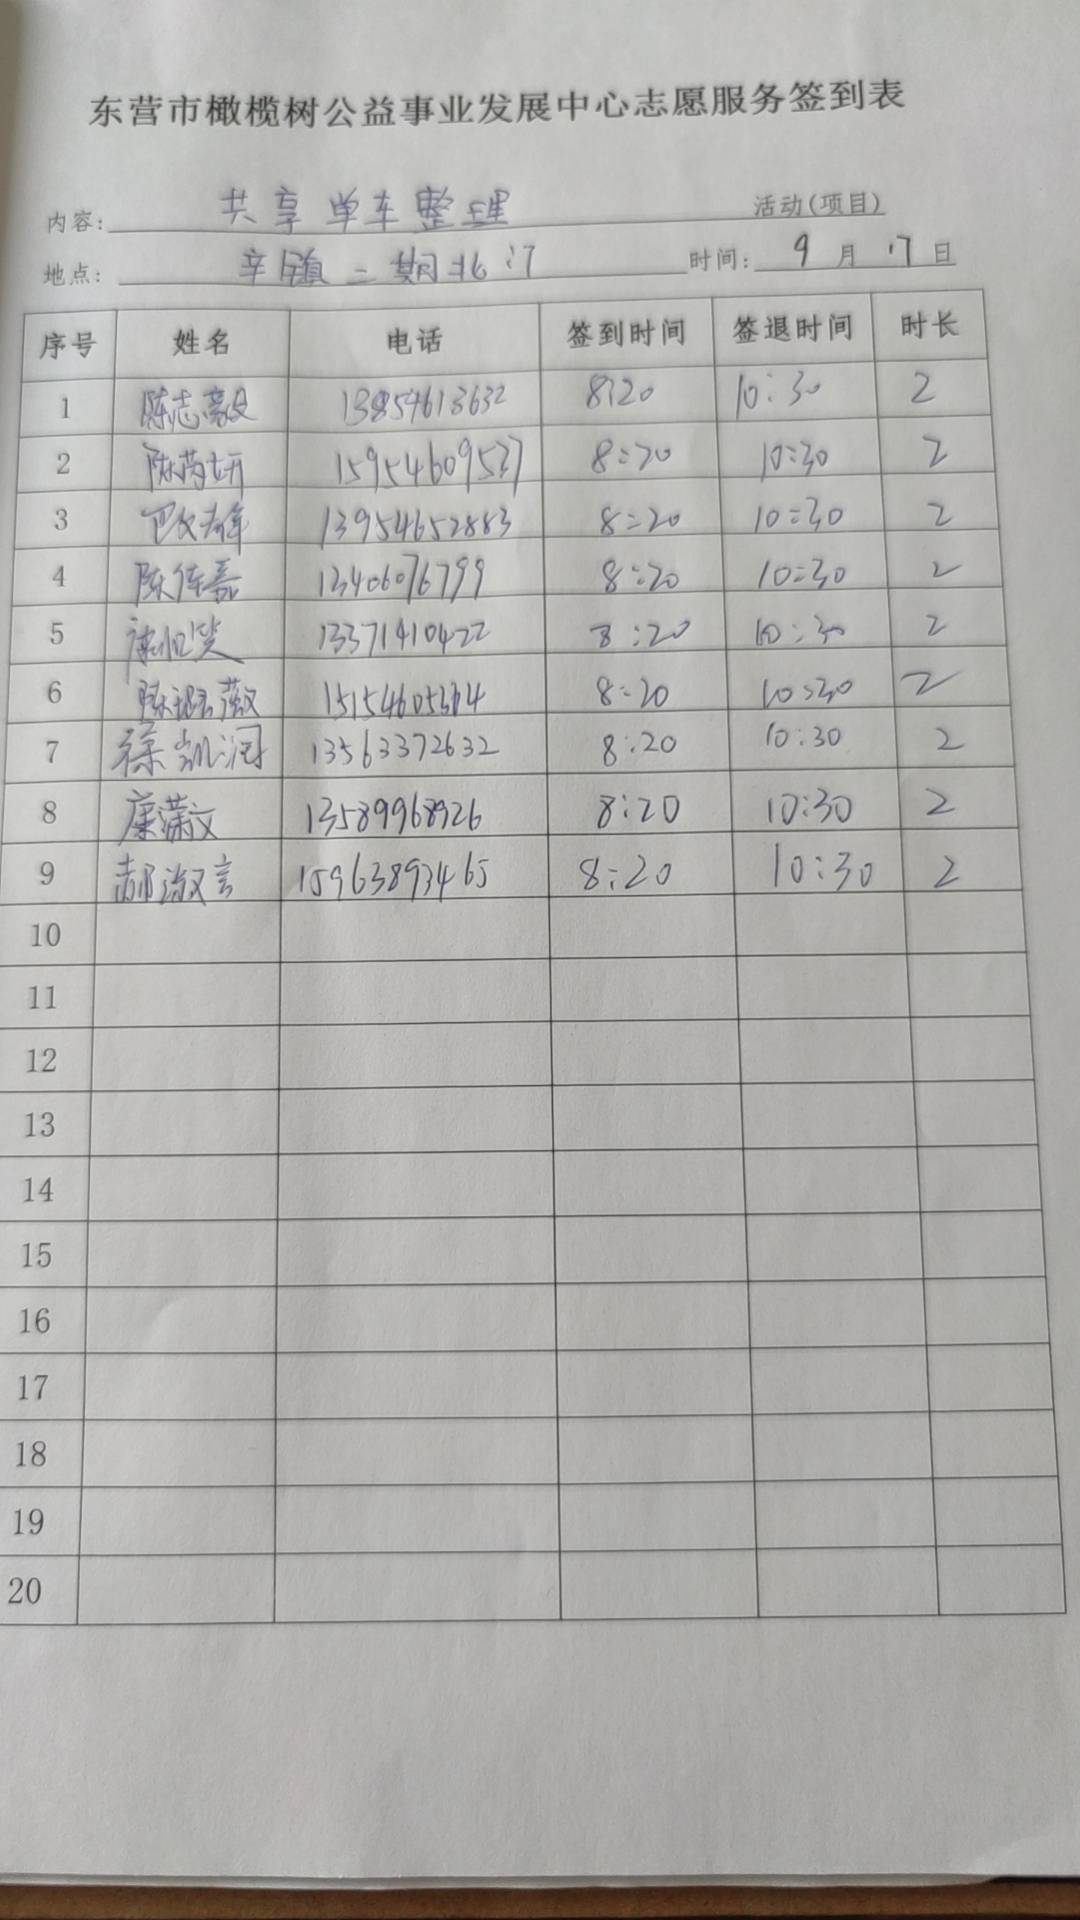 东营市橄榄树公益事业发展中心志愿服务签到表
内容: 共享单车整理 活动(项目)
地点: 辛镇二期北门 时间: 9月17日
序号 姓名 电话 签到时间 签退时间 时长
1 陈志毅 13854613632 8:20 10:30 2
2 陈芮妍 15954609537 8:20 10:30 2
3 13954652883 8:20 10:30 2
4 陈佳磊 13406076799 8:20 10:30 2
5 13371410422 8:20 10:30 2
6 8:20 10:30 2
7 徐凯润 13563372632 8:20 10:30 2
8 康潇文 13589968926 8:20 10:30 2
9 郝淑言 15963893465 8:20 10:30 2
10
11
12
13
14
15
16
17
18
19
20